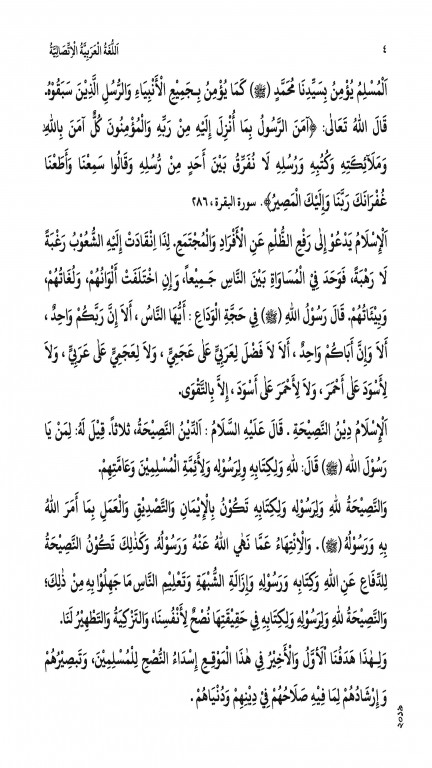 ٤ اَللُّغَةُ الْعَرَبِيَّةُ الْاِتِّصَالِيَّةُ
اَلْمُسْلِمُ يُؤْمِنُ بِسَيِّدِنَا مُحَمَّدٍ (ﷺ) كَمَا يُؤْمِنُ بِجَمِيْعِ الْأَنْبِيَاءِ وَالرُّسُلِ الَّذِيْنَ سَبَقُوْهُ.
قَالَ اللهُ تَعَالَى: ﴿آمَنَ الرَّسُولُ بِمَا أُنْزِلَ إِلَيْهِ مِنْ رَبِّهِ وَالْمُؤْمِنُونَ كُلٌّ آمَنَ بِاللهِ
وَمَلَائِكَتِهِ وَكُتُبِهِ وَرُسُلِهِ لَا نُفَرِّقُ بَيْنَ أَحَدٍ مِنْ رُسُلِهِ وَقَالُوا سَمِعْنَا وَأَطَعْنَا
غُفْرَانَكَ رَبَّنَا وَإِلَيْكَ الْمَصِيرُ﴾. سورة البقرة ، ٢٨٦
اَلْإِسْلَامُ يَدْعُوْ إِلَى رَفْعِ الظُّلْمِ عَنِ الْأَفْرَادِ وَالْمُجْتَمَعِ. لِذَا انْقَادَتْ إِلَيْهِ الشُّعُوْبُ رَغْبَةً
لَا رَهْبَةً، فَوَحَدَ فِيْ الْمُسَاوَاةِ بَيْنَ النَّاسِ جَمِيْعاً، وَإِنِ اخْتَلَفَتْ أَلْوَانُهُمْ، وَلُغَاتُهُمْ،
وَبِيْئَاتُهُمْ. قَالَ رَسُوْلُ اللهِ (ﷺ) فِي حَجَّةِ الْوَدَاعِ : أَيُّهَا النَّاسُ ، أَلَا إِنَّ رَبَّكُمْ وَاحِدٌ ،
أَلَا وَإِنَّ أَبَاكُمْ وَاحِدٌ ، أَلَا لَا فَضْلَ لِعَرَبِيٍّ عَلَى عَجَمِيٍّ ، وَلَا لِعَجَمِيٍّ عَلَى عَرَبِيٍّ ، وَلَا
لِأَسْوَدَ عَلَى أَحْمَرَ ، وَلَا لِأَحْمَرَ عَلَى أَسْوَدَ ، إِلَّا بِالتَّقْوَى.
اَلْإِسْلَامُ دِيْنُ النَّصِيْحَةِ . قَالَ عَلَيْهِ السَّلَامُ : اَلدِّيْنُ النَّصِيْحَةُ، ثَلَاثاً. قِيْلَ لَهُ: لِمَنْ يَا
رَسُوْلَ الله (ﷺ) قَالَ: لِلهِ وَلِكِتَابِهِ وَلِرَسُوْلِهِ وَلِأَئِمَّةِ الْمُسْلِمِيْنَ وَعَامَّتِهِمْ.
وَالنَّصِيْحَةُ لِلهِ وَلِرَسُوْلِهِ وَلِكِتَابِهِ تَكُوْنُ بِالْإِيْمَانِ وَالتَّصْدِيْقِ وَالْعَمَلِ بِمَا أَمَرَ اللهُ
بِهِ وَرَسُوْلُهُ (ﷺ) . وَالْاِنْتِهَاءُ عَمَّا نَهَى اللهُ عَنْهُ وَرَسُوْلُهُ. وَكَذٰلِكَ تَكُوْنُ النَّصِيْحَةُ
لِلدِّفَاعِ عَنِ اللهِ وَكِتَابِهِ وَرَسُوْلِهِ وَإِزَالَةِ الشُّبْهَةِ وَتَعْلِيْمِ النَّاسِ مَا جَهِلُوْا بِهِ مِنْ ذٰلِكَ؛
وَالنَّصِيْحَةُ لِلهِ وَلِرَسُوْلِهِ وَلِكِتَابِهِ فِي حَقِيْقَتِهَا نُصْحٌ لِأَنْفُسِنَا، وَالتَّزْكِيَةُ وَالتَّطْهِيْرُ لَنَا.
وَلِهٰذَا هَدَفُنَا الْأَوَّلُ وَالْأَخِيْرُ فِي هٰذَا الْمَوْقِعِ إِسْدَاءُ النُّصْحِ لِلْمُسْلِمِيْنَ، وَتَبْصِيْرُهُمْ
وَ إِرْشَادُهُمْ لِمَا فِيْهِ صَلَاحُهُمْ فِيْ دِيْنِهِمْ وَدُنْيَاهُمْ .
২০১৯